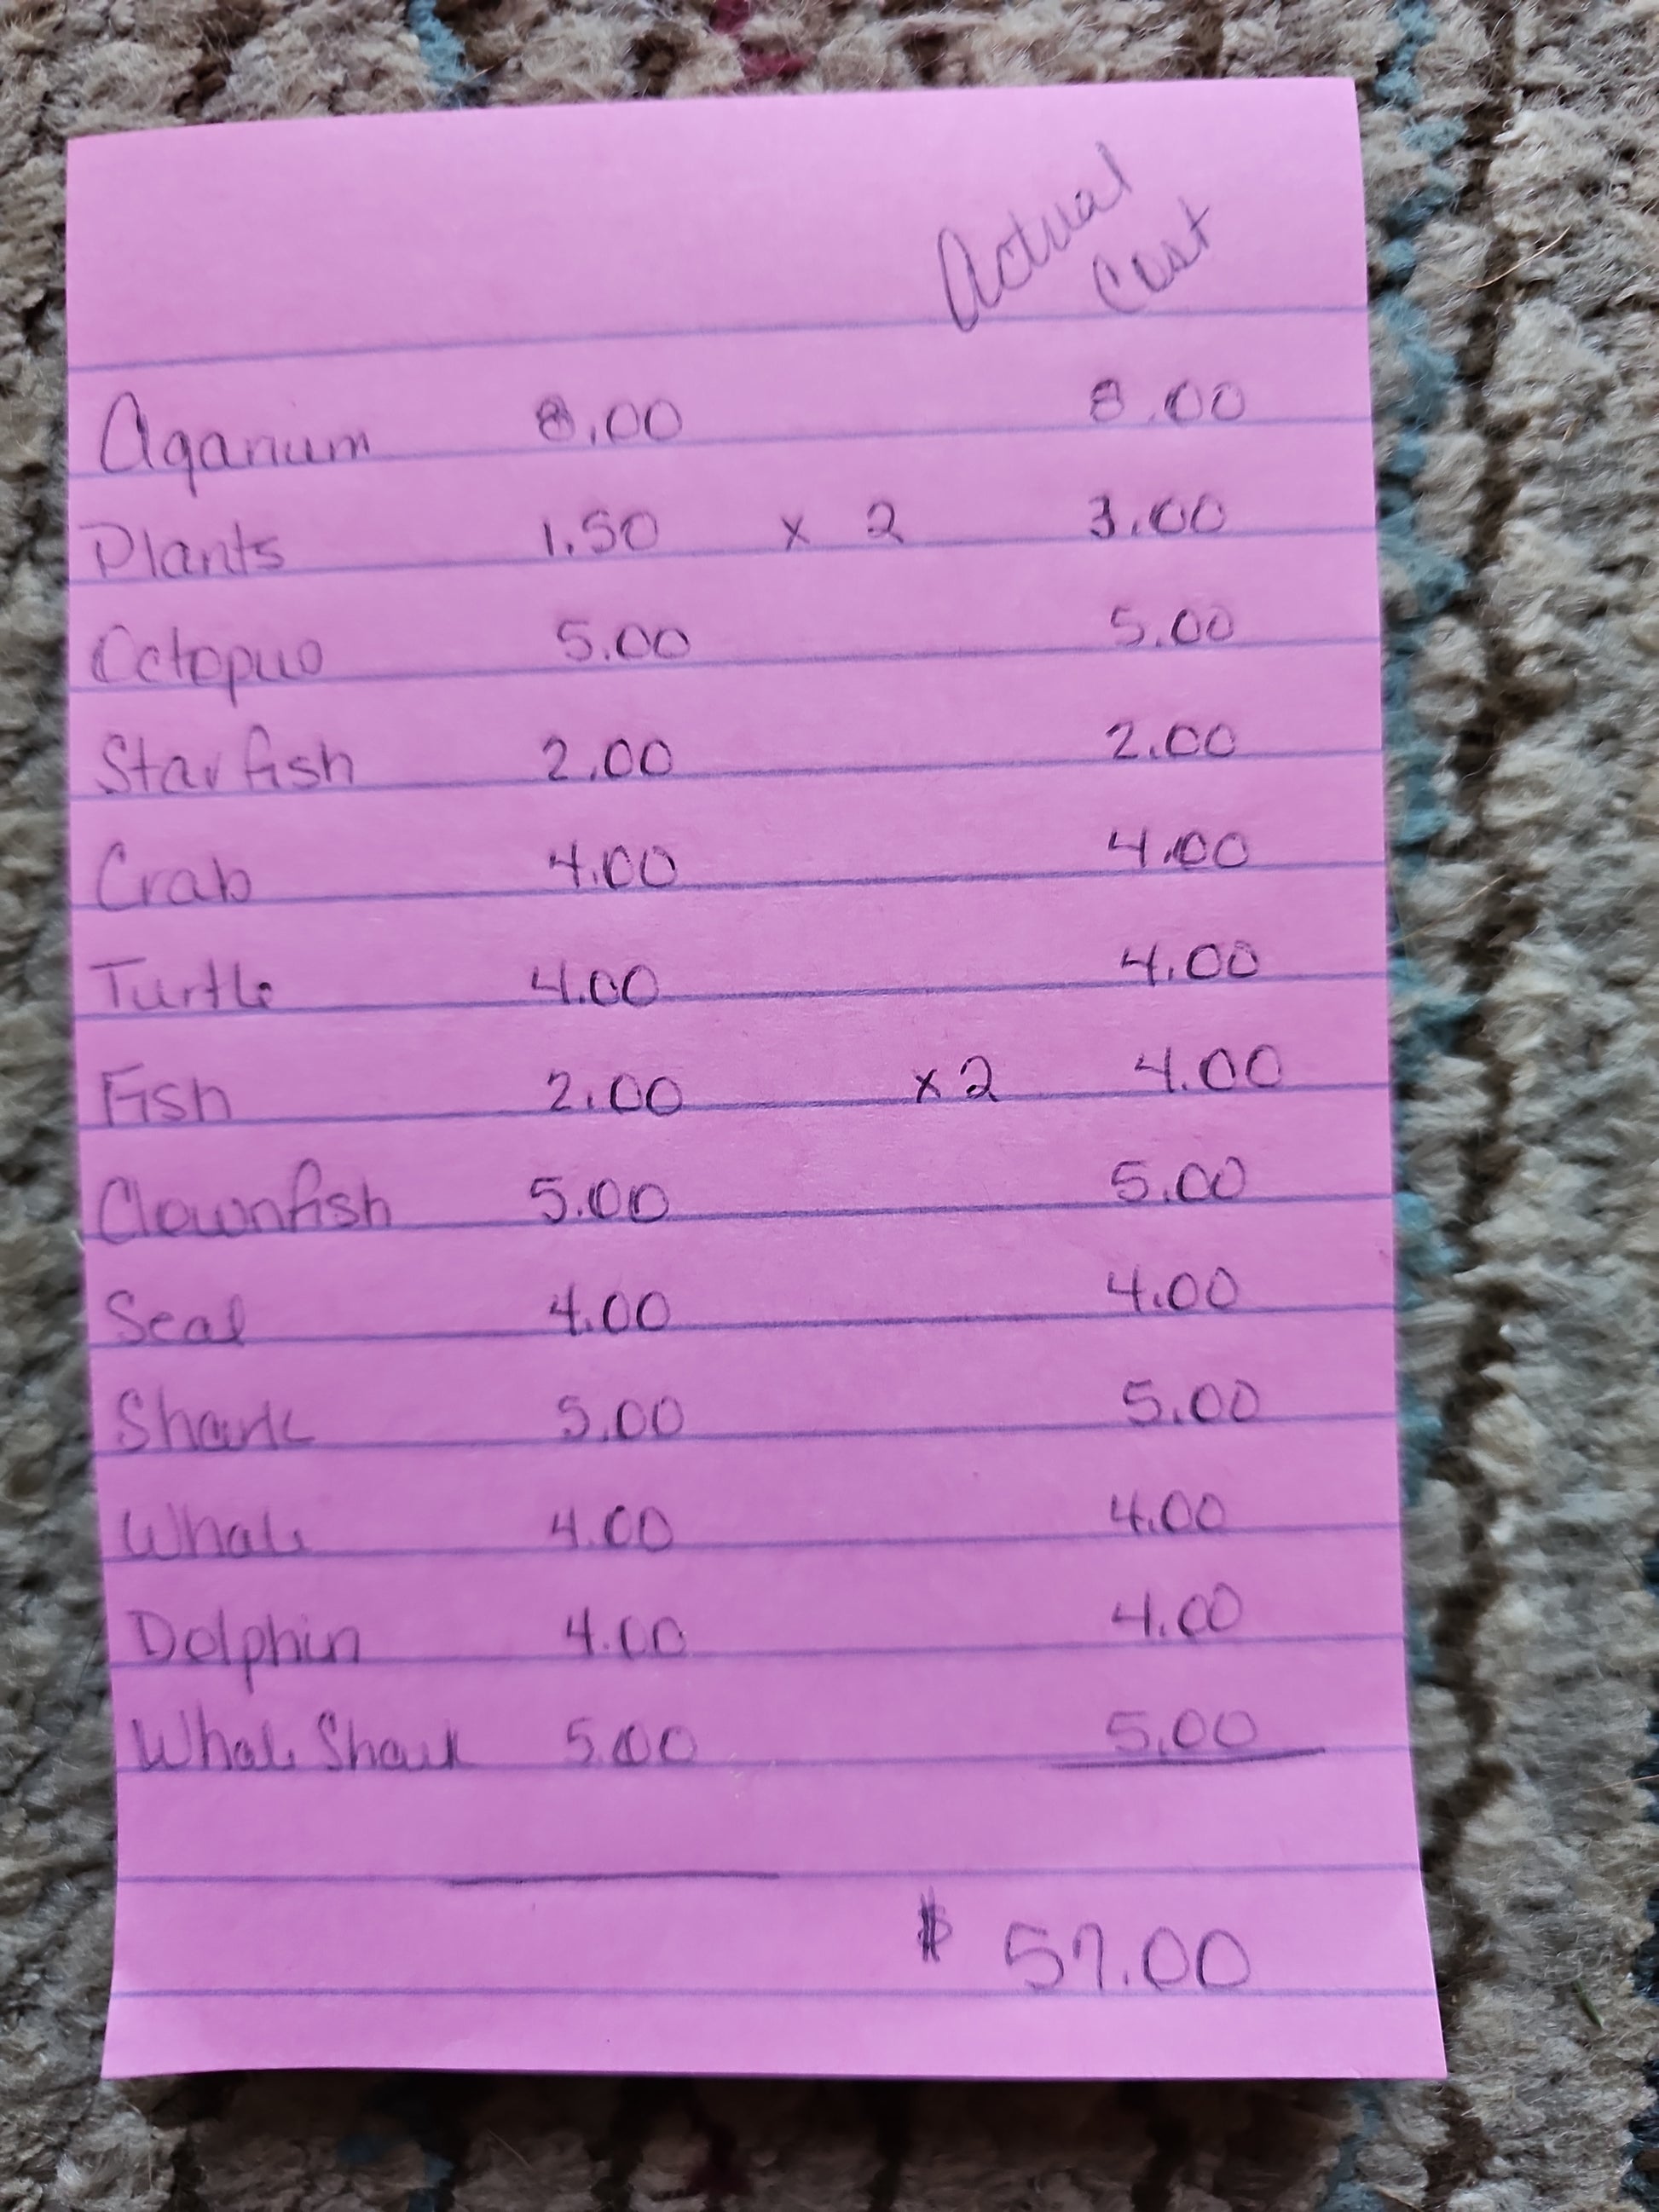 Actual
Cost
Aqarium 8.00 8.00
Plants 1.50 x 2 3.00
Octopus 5.00 5.00
Starfish 2.00 2.00
Crab 4.00 4.00
Turtle 4.00 4.00
Fish 2.00 x2 4.00
Clownfish 5.00 5.00
Seal 4.00 4.00
Shark 5.00 5.00
Whale 4.00 4.00
Dolphin 4.00 4.00
Whale Shark 5.00 5.00
$ 57.00